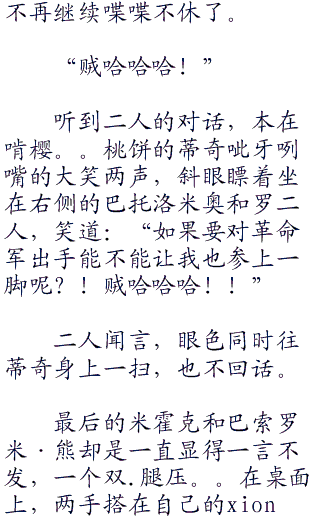 不再继续喋喋不休了。
“贼哈哈哈！”
听到二人的对话，本在
啃樱。。桃饼的蒂奇呲牙咧
嘴的大笑两声，斜眼瞟着坐
在右侧的巴托洛米奥和罗二
人，笑道：“如果要对革命
军出手能不能让我也参上一
脚呢？！贼哈哈哈！！”
二人闻言，眼色同时往
蒂奇身上一扫，也不回话。
最后的米霍克和巴索罗
米·熊却是一直显得一言不
发，一个双.腿压。。在桌面
上，两手搭在自己的xion